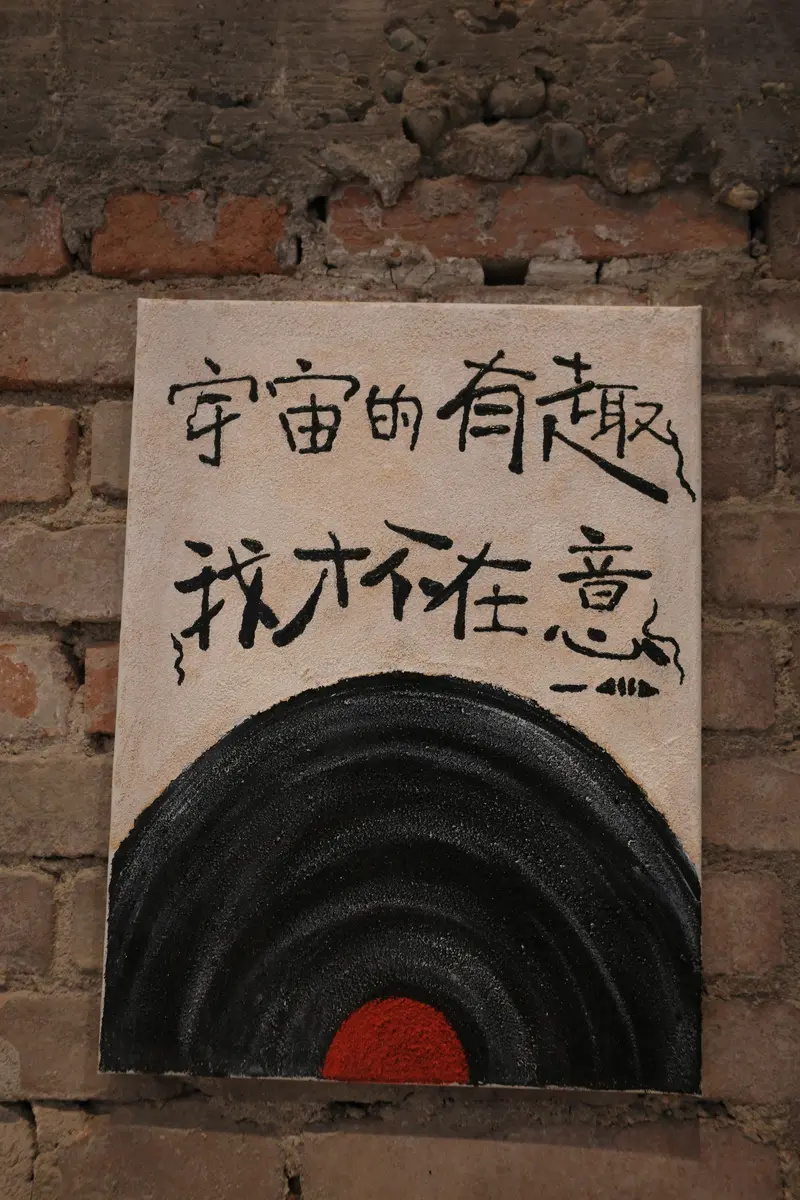 宇宙的有趣
我才不在意